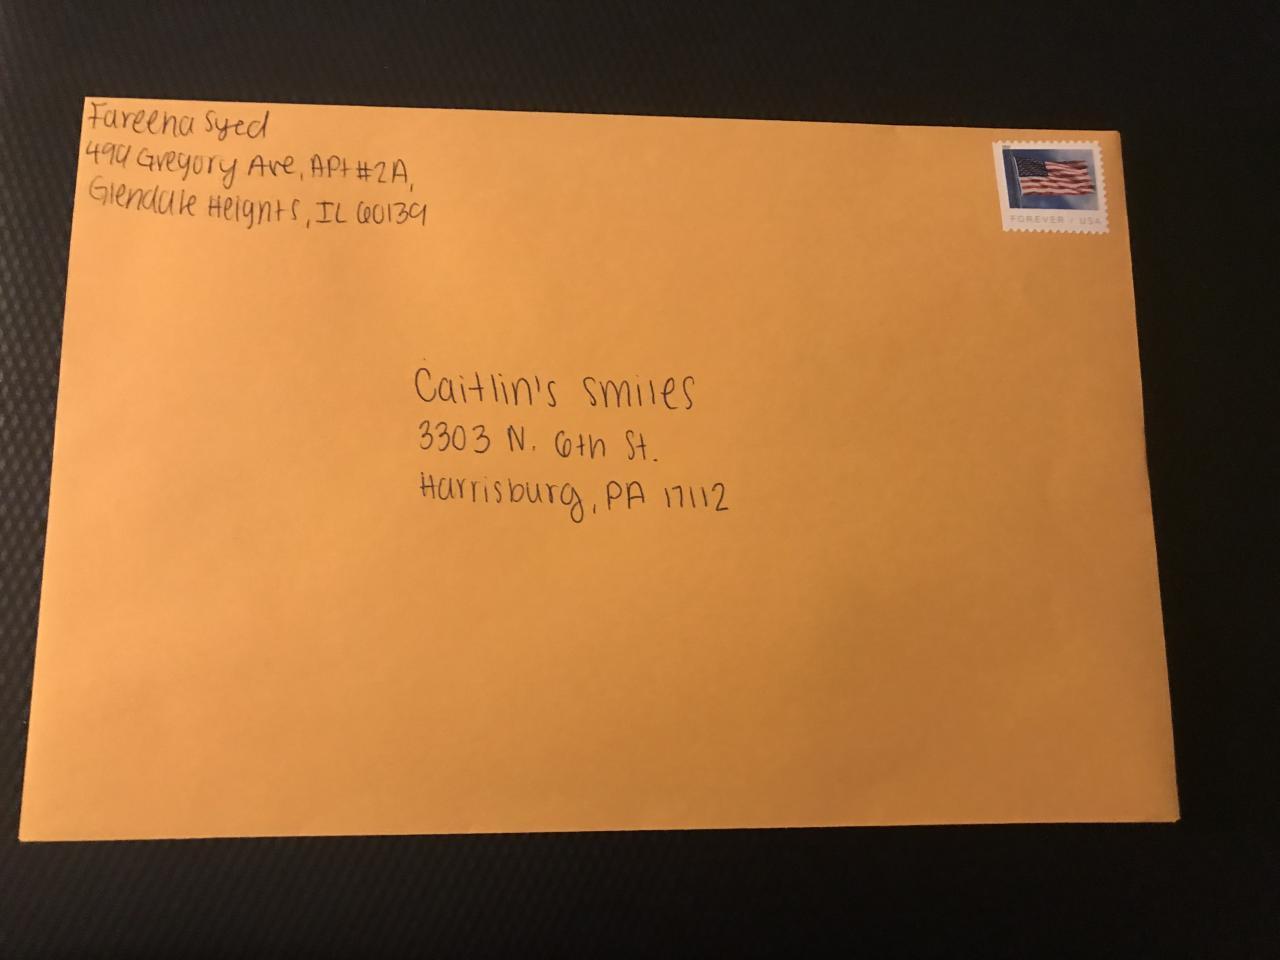 Fareena Syed
499 Gregory Ave, APt #2A,
Glendale Heights, IL 60139
FOREVER / USA
Caitlin's smiles
3303 N. 6th St.
Harrisburg, PA 17112